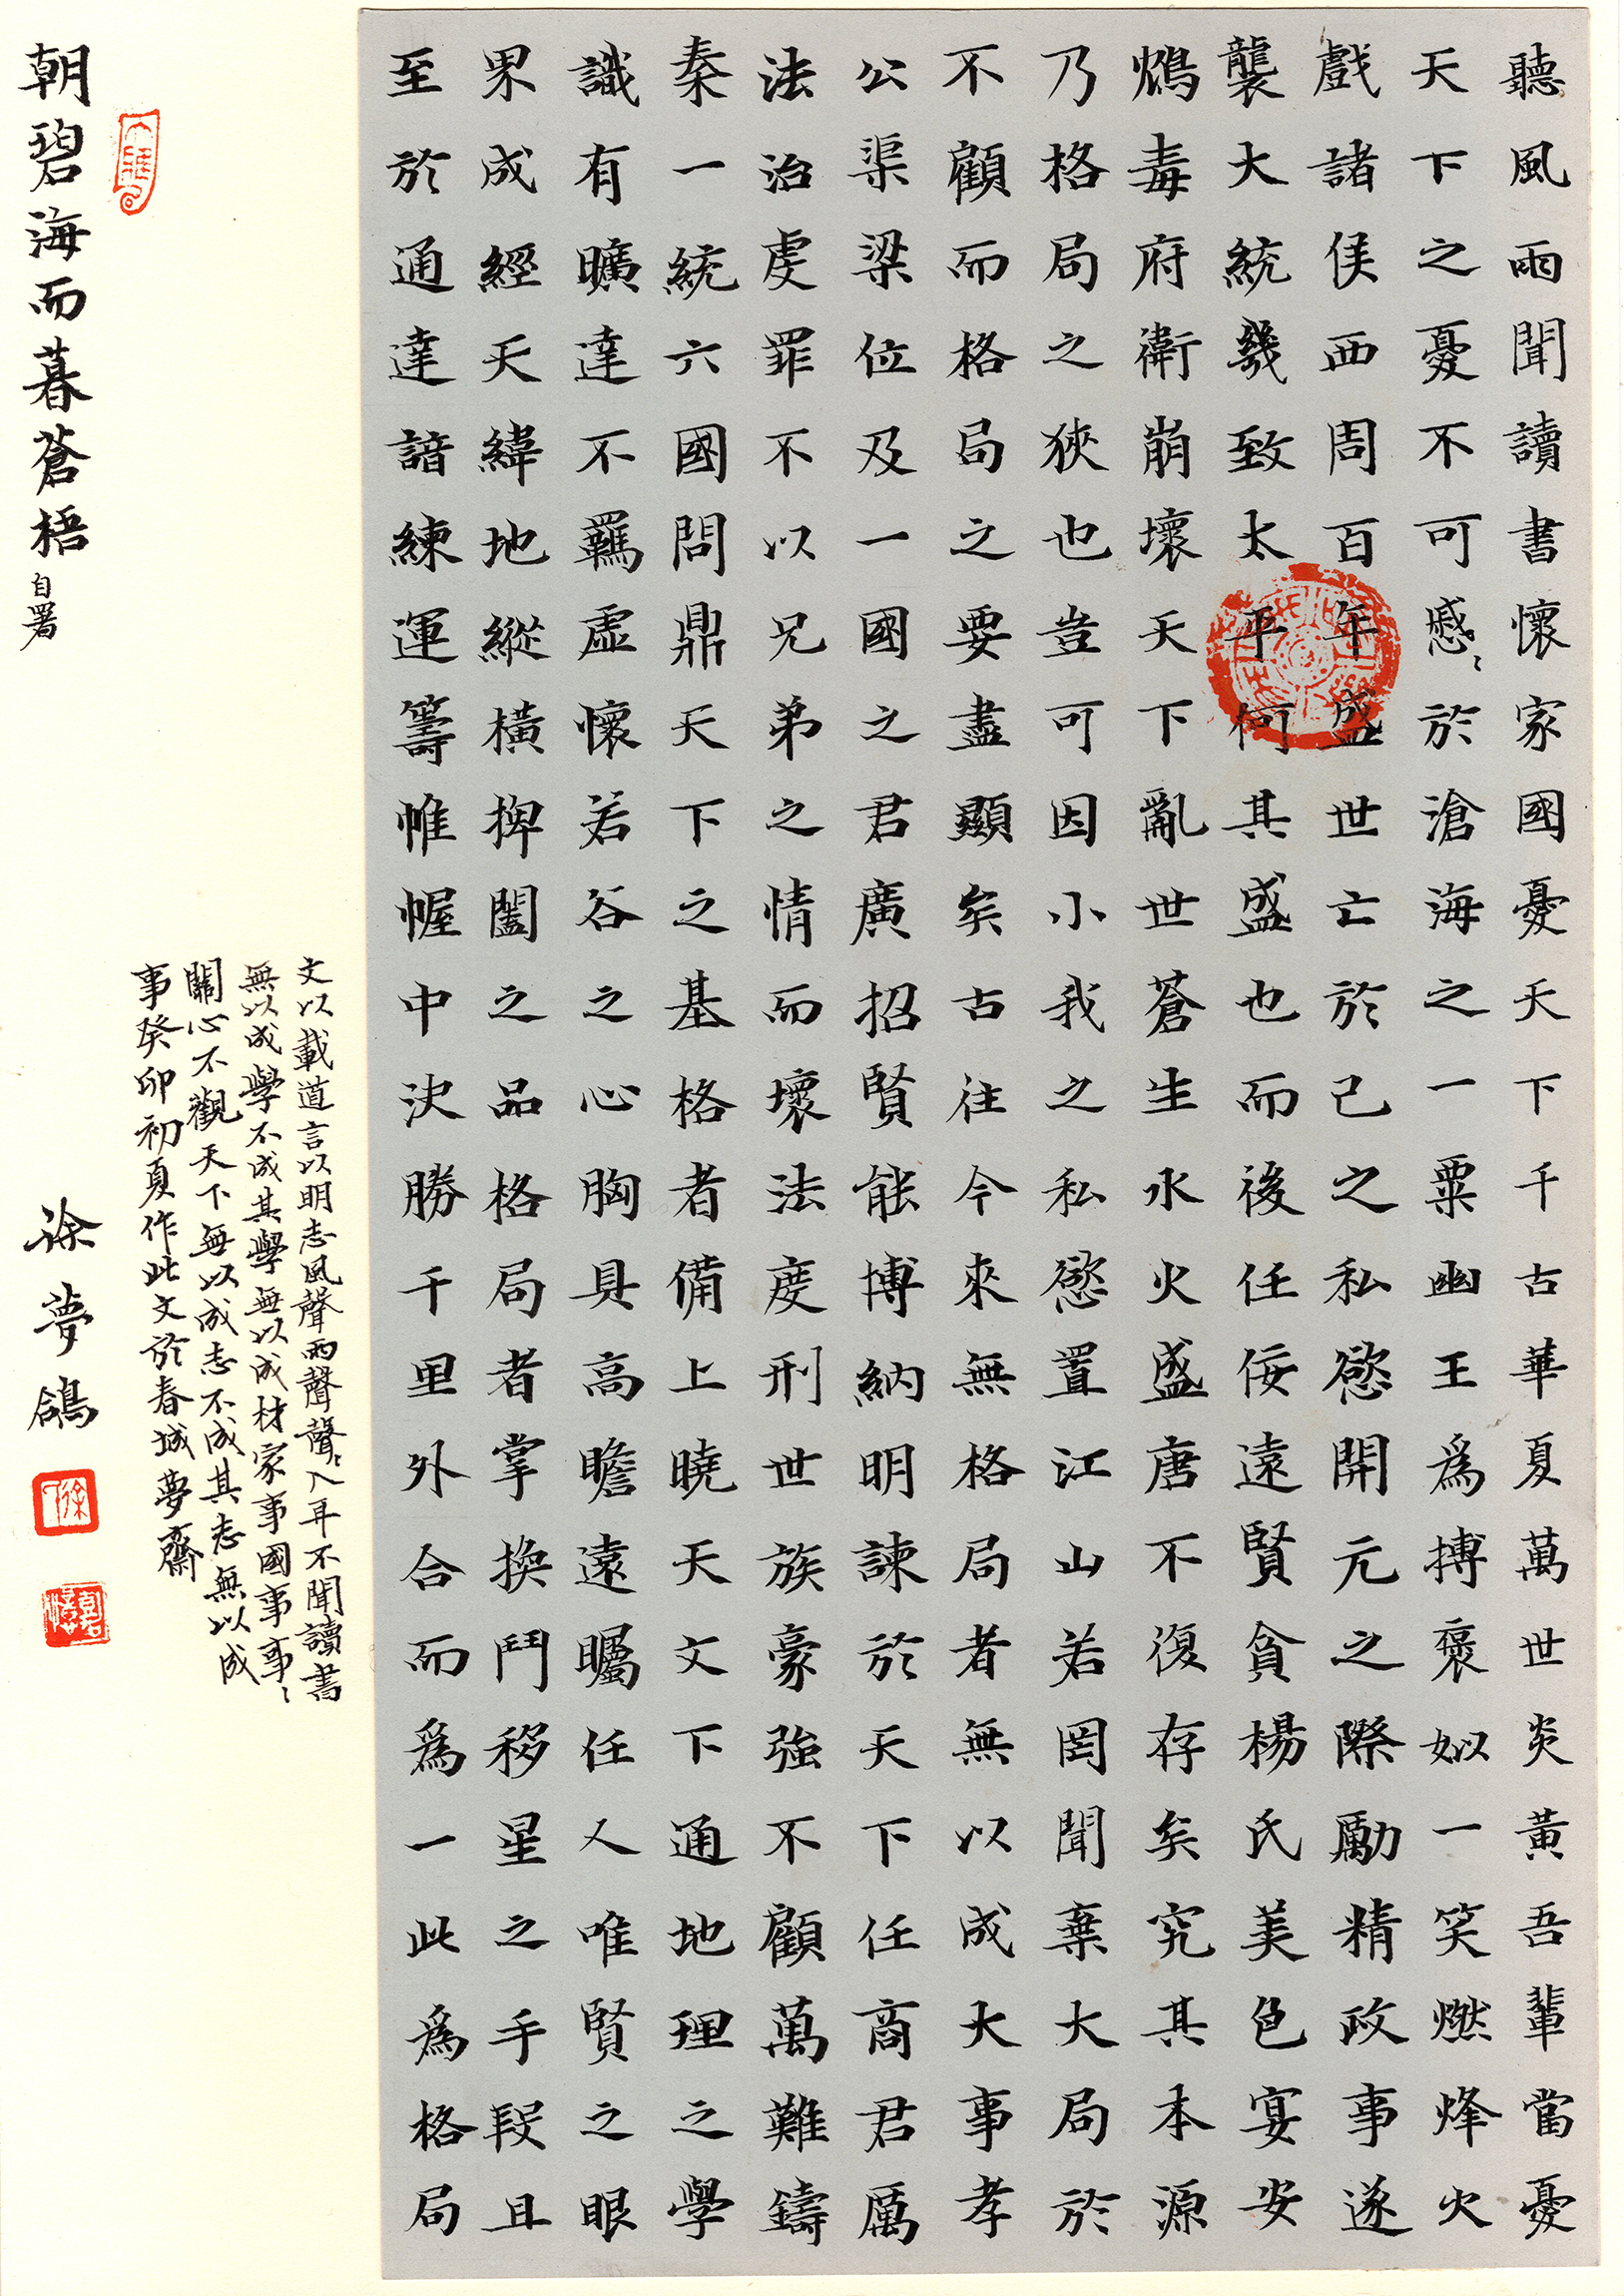 聽風雨聞讀書懷家國憂天下千古華夏萬世炎黃吾輩當憂
天下之憂不可慼〻於滄海之一粟幽王為搏褒姒一笑燃烽火
戲諸侯西周百年盛世亡於己之私慾開元之際勵精政事遂
襲大統幾致太平何其盛也而後任佞遠賢貪楊氏美色宴安
鴆毒府衛崩壞天下亂世蒼生水火盛唐不復存矣究其本源
乃格局之狹也豈可因小我之私慾置江山若罔聞棄大局於
不顧而格局之要盡顯矣古往今來無格局者無以成大事孝
公渠梁位及一國之君廣招賢能博納明諫於天下任商君厲
法治虔罪不以兄弟之情而壞法度刑世族豪強不顧萬難鑄
秦一統六國問鼎天下之基格者備上曉天文下通地理之學
識有曠達不羈虛懷若谷之心胸具高瞻遠矚任人唯賢之眼
界成經天緯地縱橫捭闔之品格局者掌換鬥移星之手段且
至於通達諳練運籌帷幄中決勝千里外合而為一此為格局
文以載道言以明志風聲雨聲聲〻入耳不聞讀書
無以成學不成其學無以成材家事國事事〻
關心不觀天下無以成志不成其志無以成
事癸卯初夏作此文於春城夢齋
朝碧海而暮蒼梧 自署
徐夢鴿